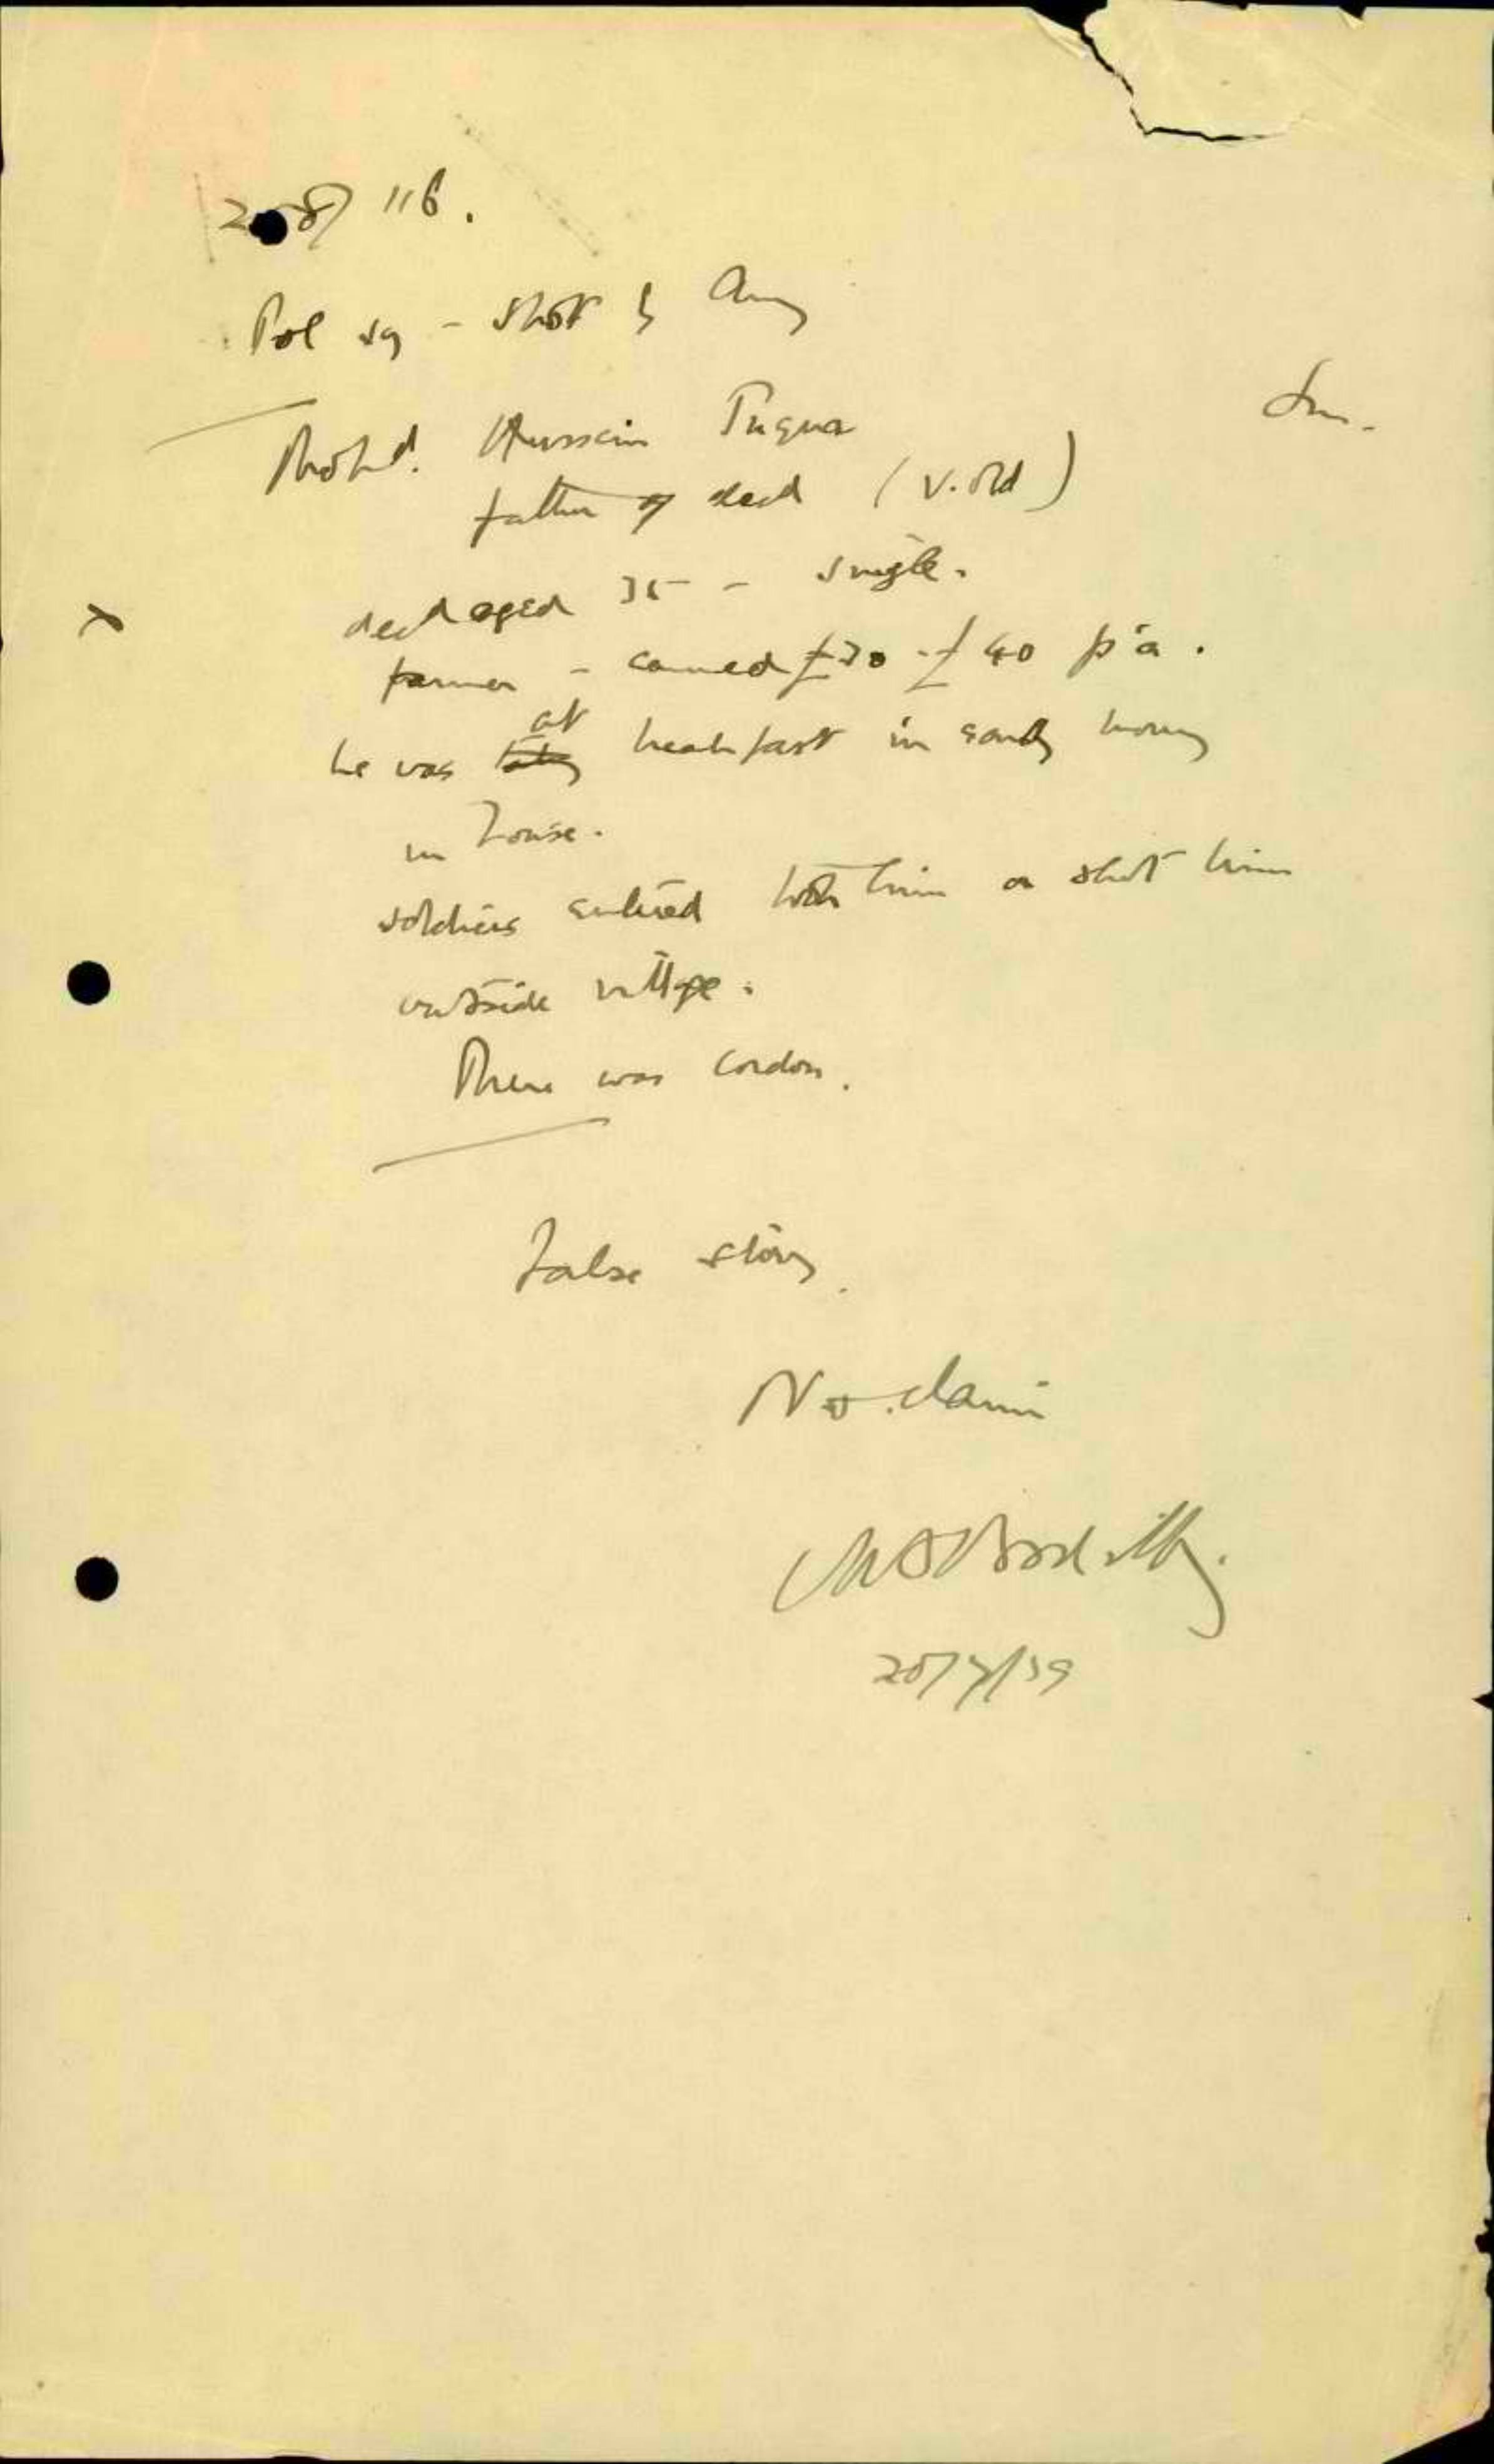 116.
Pol sq - shot by Army
Mohd. Hussein
father of decd (v. old)
decd aged 35 - single.
farmer - earned £30 - £40 p.a.
he was at breakfast in early morng
in house.
soldiers entered took him & shot him
outside village.
There was cordon.
False story.
No claim
20/7/39